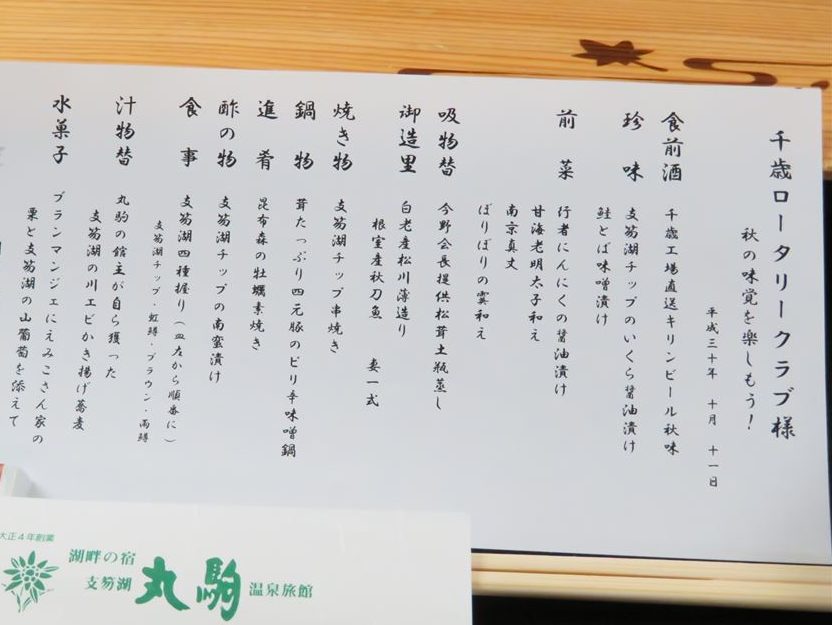 千歳ロータリークラブ様
秋の味覚を楽しもう！
平成三十年 十月 十一日
食前酒 千歳工場直送キリンビール秋味
珍味 支笏湖チップのいくら醤油漬け
鮭とば味噌漬け
前菜 行者にんにくの醤油漬け
甘海老明太子和え
南京真丈
ぽりぽりの霙和え
吸物替 今野会長提供松茸土瓶蒸し
御造里 白老産松川薄造り
根室産秋刀魚 妻一式
焼き物 支笏湖チップ串焼き
鍋物 茸たっぷり四元豚のピリ辛味噌鍋
進肴 昆布森の牡蠣素焼き
酢の物 支笏湖チップの南蛮漬け
食事 支笏湖四種握り（皿左から順番に）
支笏湖チップ・虹鱒・ブラウン・雨鱒
汁物替 丸駒の館主が自ら獲った
支笏湖の川エビかき揚げ蕎麦
水菓子 ブランマンジェにえみこさん家の
栗と支笏湖の山葡萄を添えて
大正4年創業
湖畔の宿
支笏湖 丸駒 温泉旅館